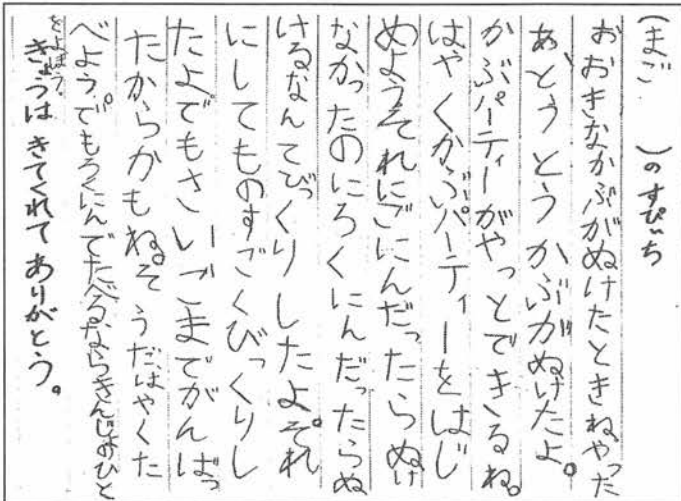 (まご　)のすぴいち
おおきなかぶがぬけたときねやった
あ、とうとうかぶがぬけたよ。
かぶパーティーがやっとできるね。
はやくかぶパーティーをはじ
めようそれにごにんだったらぬけ
なかったのにろくにんだったらぬ
けるなんてびっくりしたよそれ
にしてものすごくびっくりし
たよ。でもさいごまでがんばっ
たからかもねそうだ、はやくた
べよう。でもろくにんでたべるならきんじょのひと
をよぼう。
きょうはきてくれてありがとう。